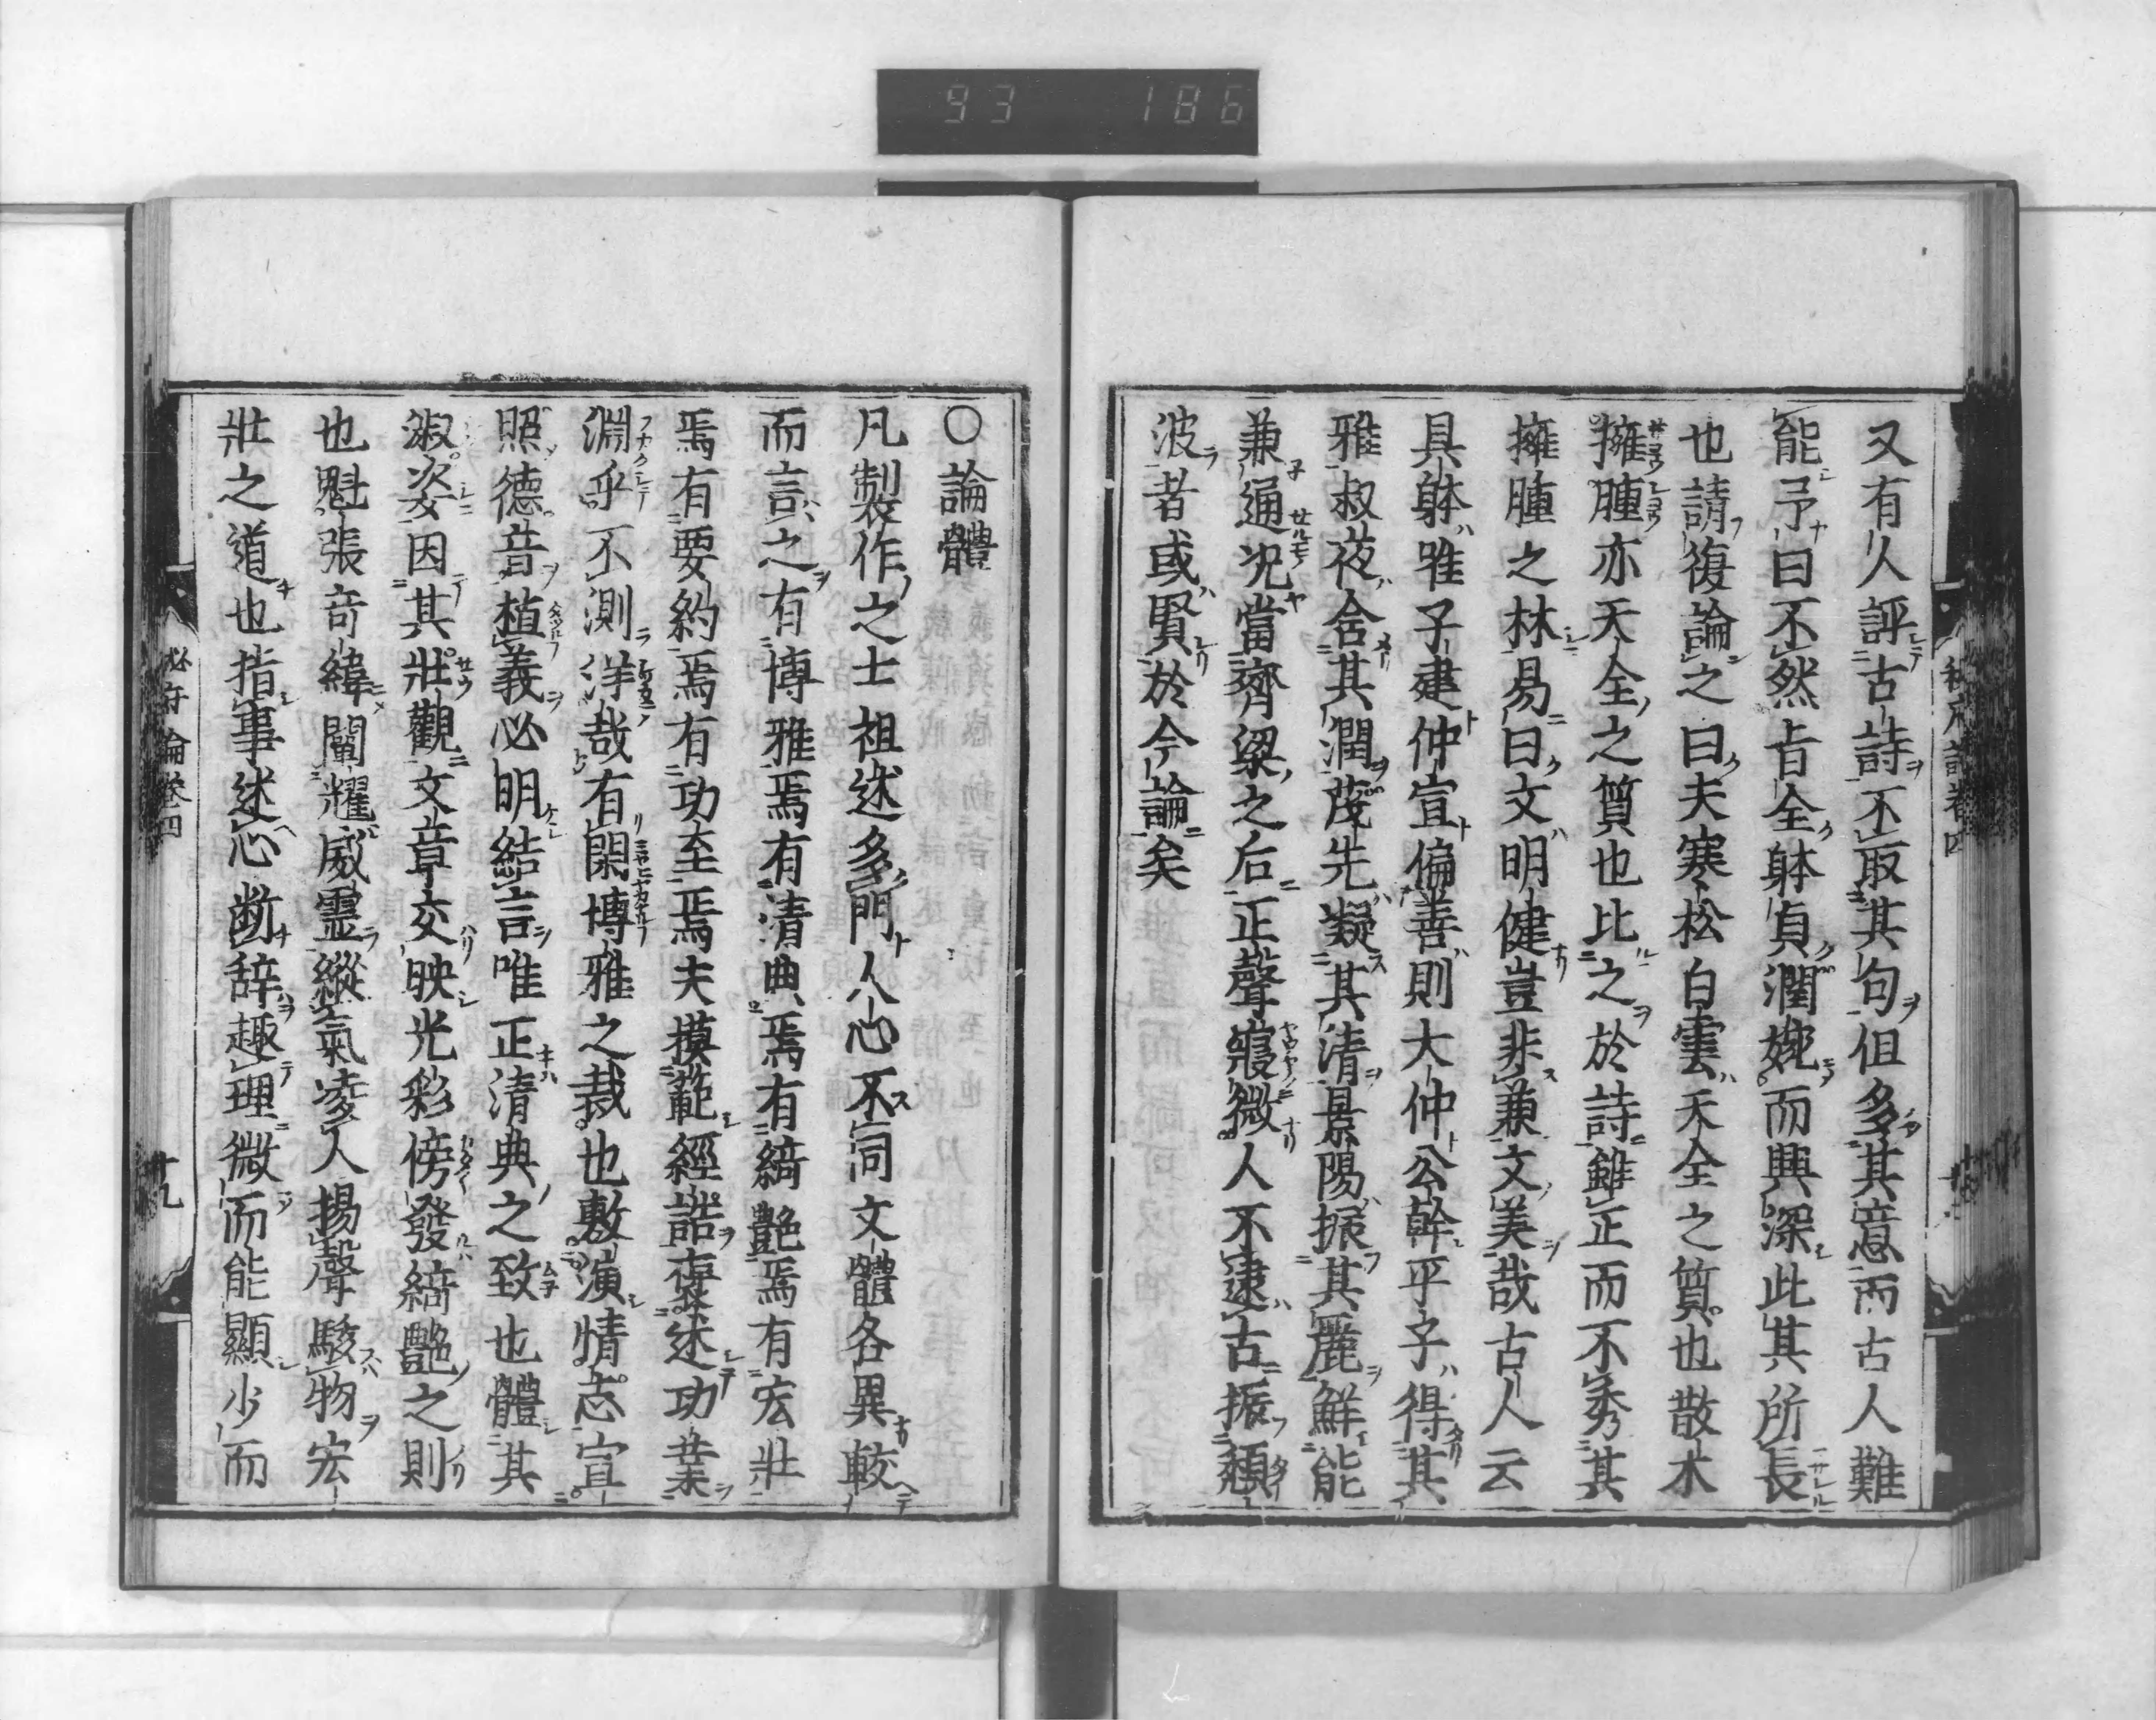 93 186
又有人評古詩不取其句但多其意而古人難
能予曰不然旨全躰貞潤婉而興深此其所長
也請復論之曰夫寒松白雲天全之質也散木
擁腫亦天全之質也比之於詩雖正而不秀其
擁腫之林易曰文明健豈非兼文美哉古人云
具躰唯子建仲宣偏善則大仲公幹平子得其
雅叔夜含其潤茂先凝其清景陽振其麗鮮能
兼通况當齊梁之后正聲寢微人不逮古振頽
波者或賢於今論矣
〇論體
凡製作之士祖述多門人心不同文體各異較
而言之有博雅焉有清典焉有綺艶焉有宏壯
焉有要約焉有功至焉夫摸範經誥褒述功業
淵乎不測洋哉有閑博雅之裁也敷演情志宣
照德音植義必明結言唯正清典之致也體其
淑姿因其壯觀文章交映光彩傍發綺艶之則
也魁張竒緯闡耀威靈縱氣凌人揚聲駭物宏
壯之道也指事述心断辞趣理微而能顯少而
秘府論卷四
廿九